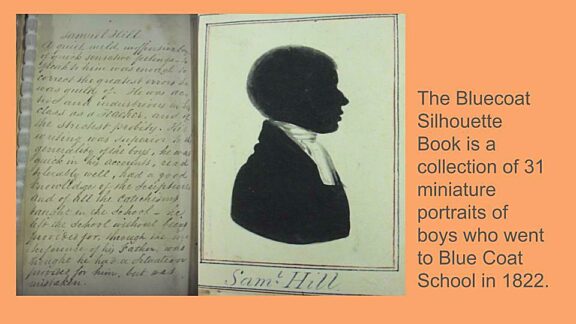 Samuel Hill
A quiet, mild, inoffensive boy
of quick sensative feelings. To
speak to him was enough to
correct the greatest errors he
was guilty of. He was ac-
tive and industrious in his
class as a teacher, and of
the strictest probity. His
writing was superior to the
generality of the boys, he was
quick in his accounts, read
tolerably well, had a good
knowledge of the Scriptures
and of all the Catechisms
taught in the School - he
left the School without being
provided for, through the in-
terference of his Father, who
thought he had a situation
provided for him, but was
mistaken.
Sam.ˡ Hill.
The Bluecoat
Silhouette
Book is a
collection of 31
miniature
portraits of
boys who went
to Blue Coat
School in 1822.